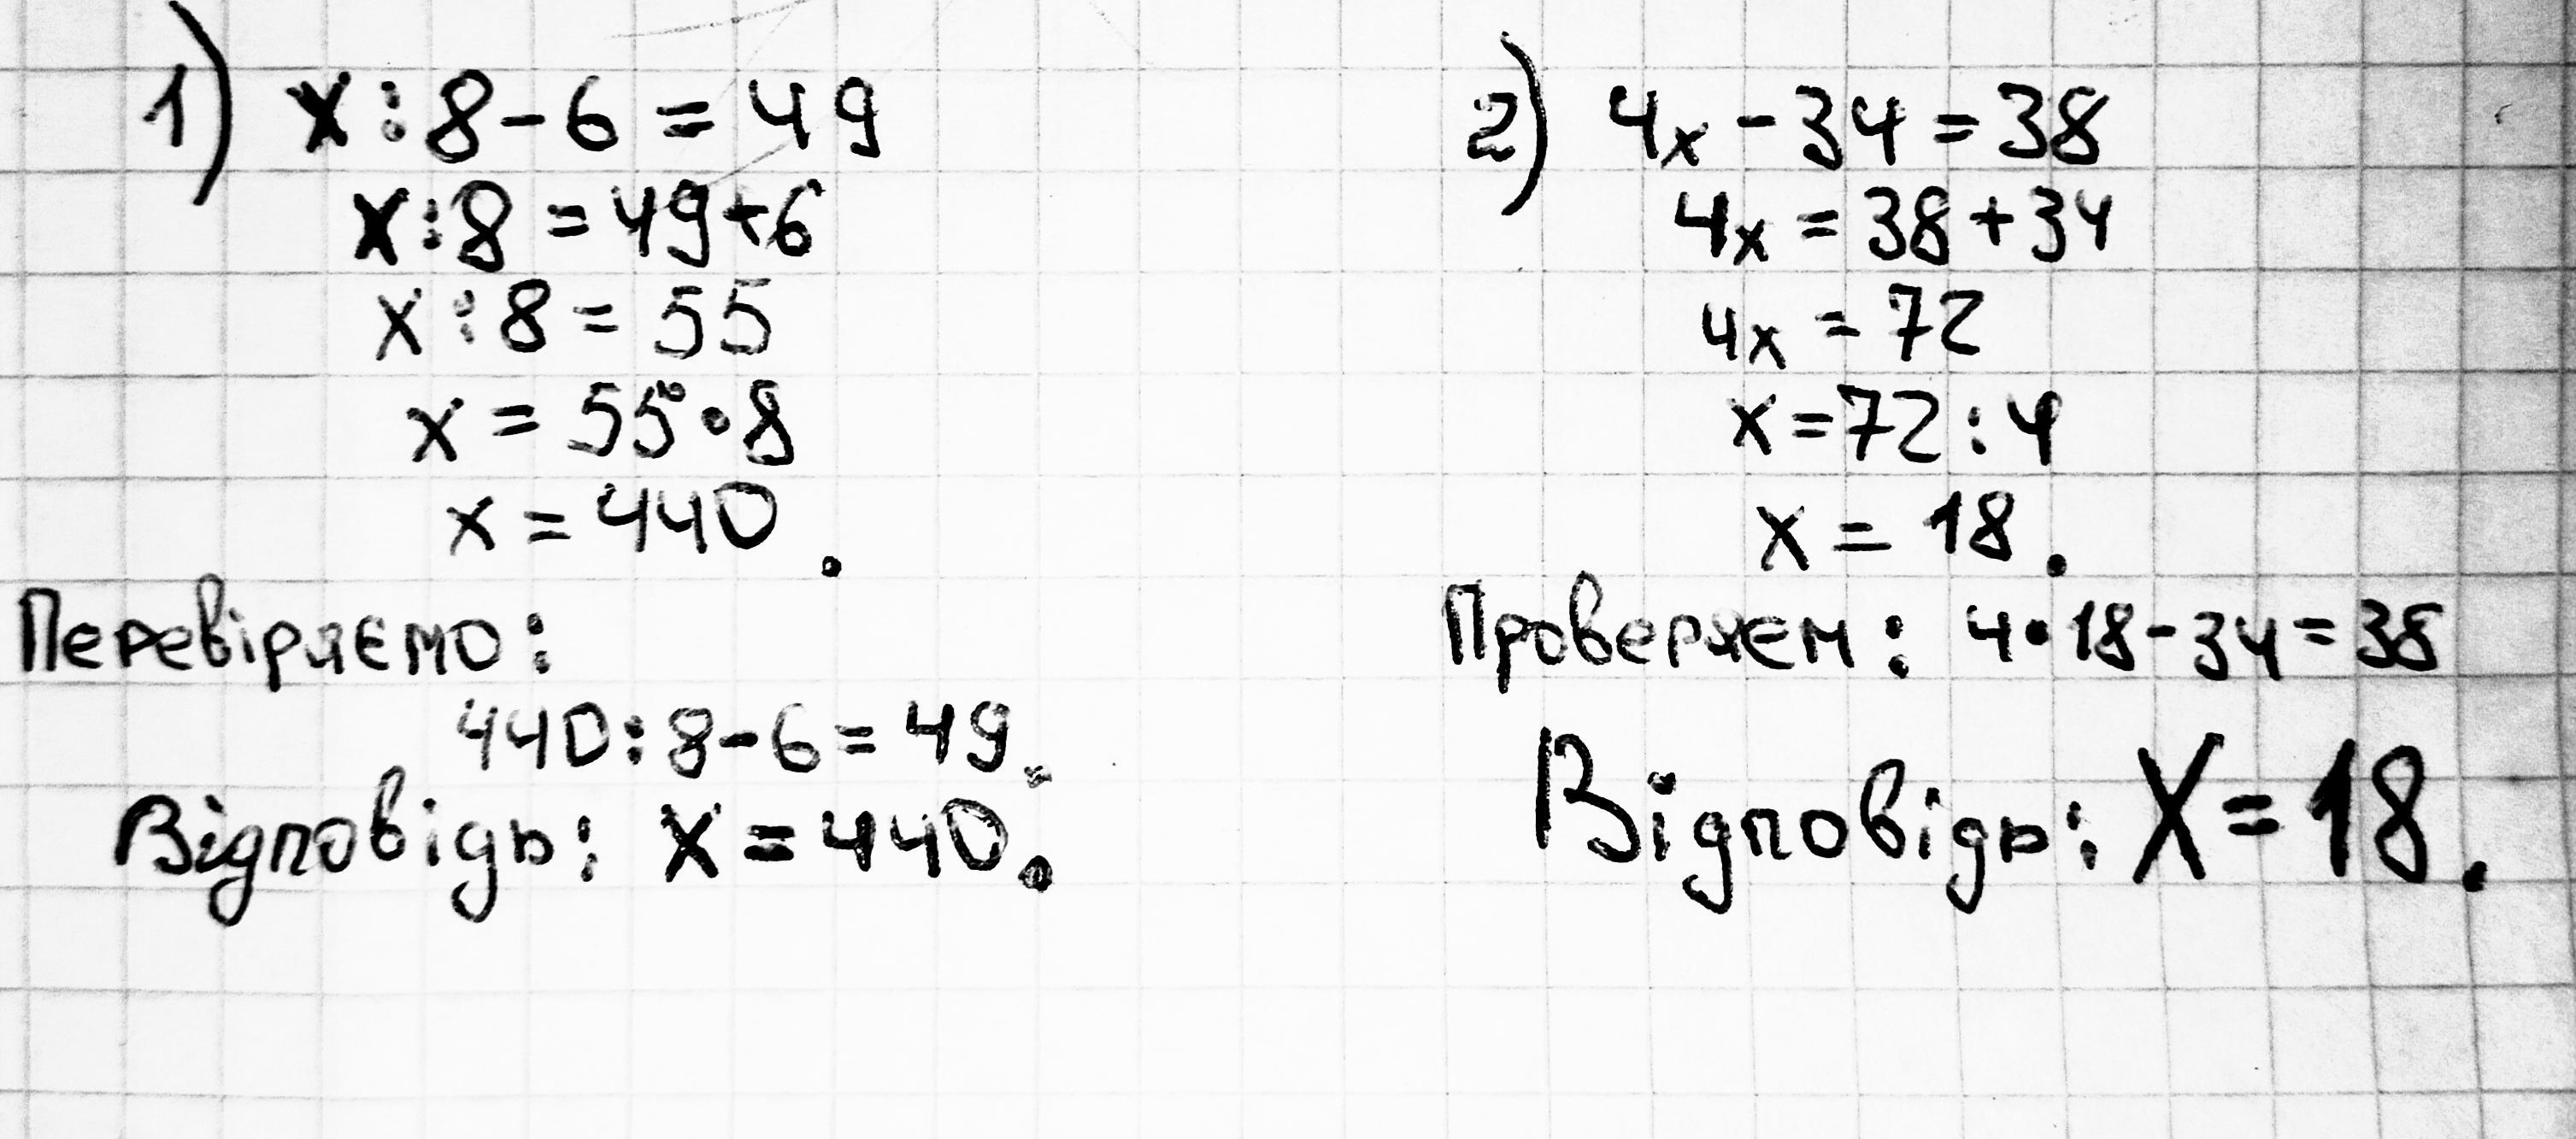 1) x : 8 - 6 = 49
x : 8 = 49 + 6
x : 8 = 55
x = 55 • 8
x = 440 .
Перевіряємо:
440 : 8 - 6 = 49.
Відповідь: x = 440.
2) 4x - 34 = 38
4x = 38 + 34
4x = 72
x = 72 : 4
x = 18 .
Проверяєм : 4 • 18 - 34 = 38
Відповідь: X = 18 .